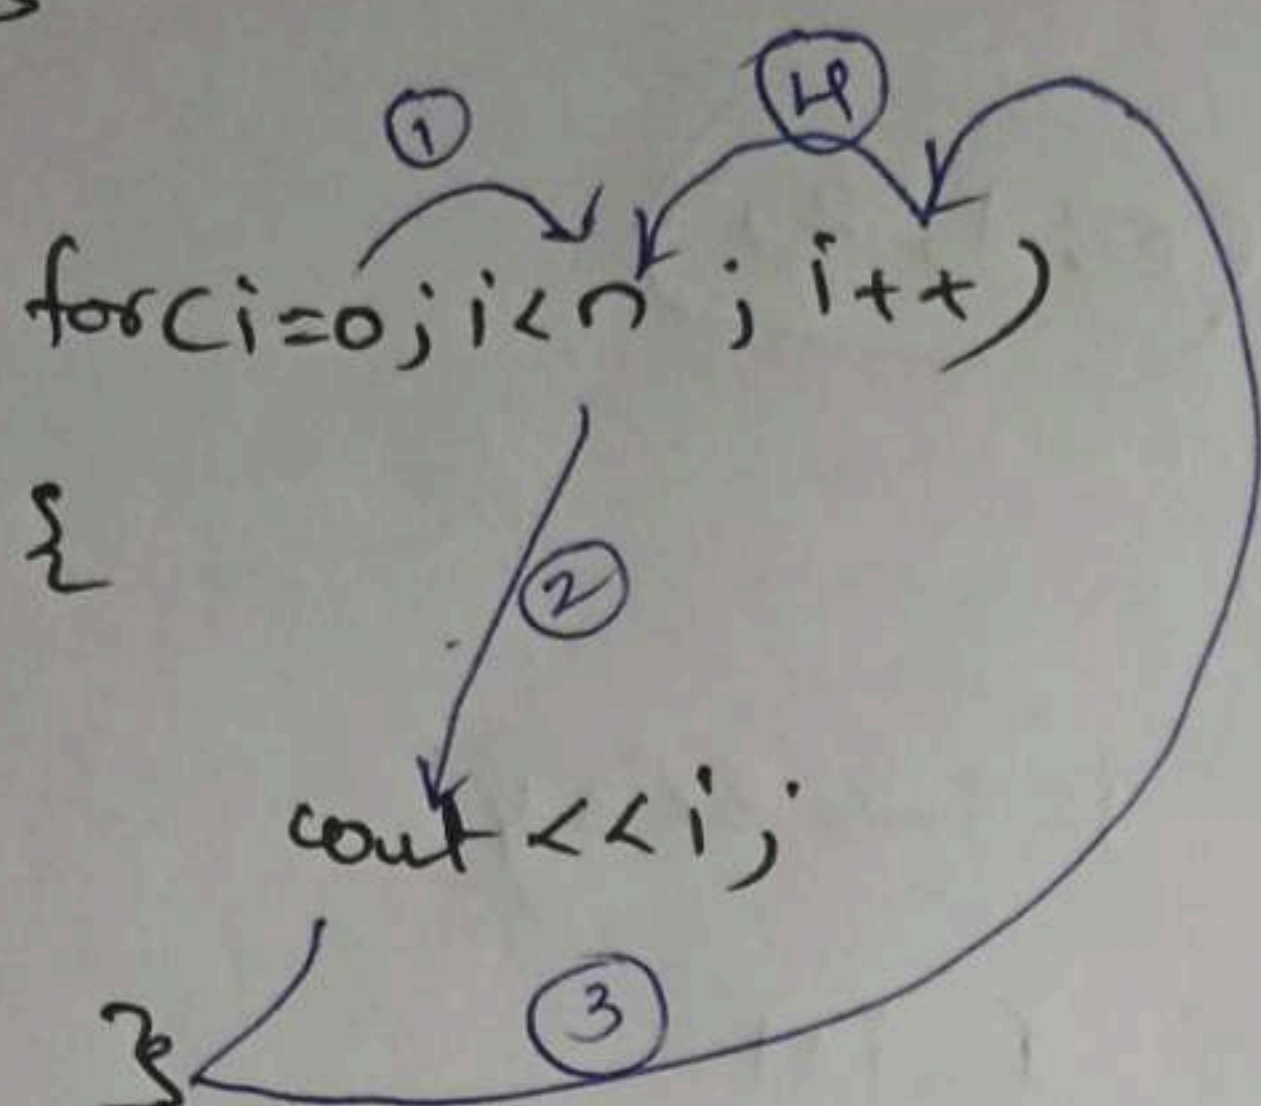 1 4
for(i=0; i<n ; i++)
{
2
cout <<i;
3
}